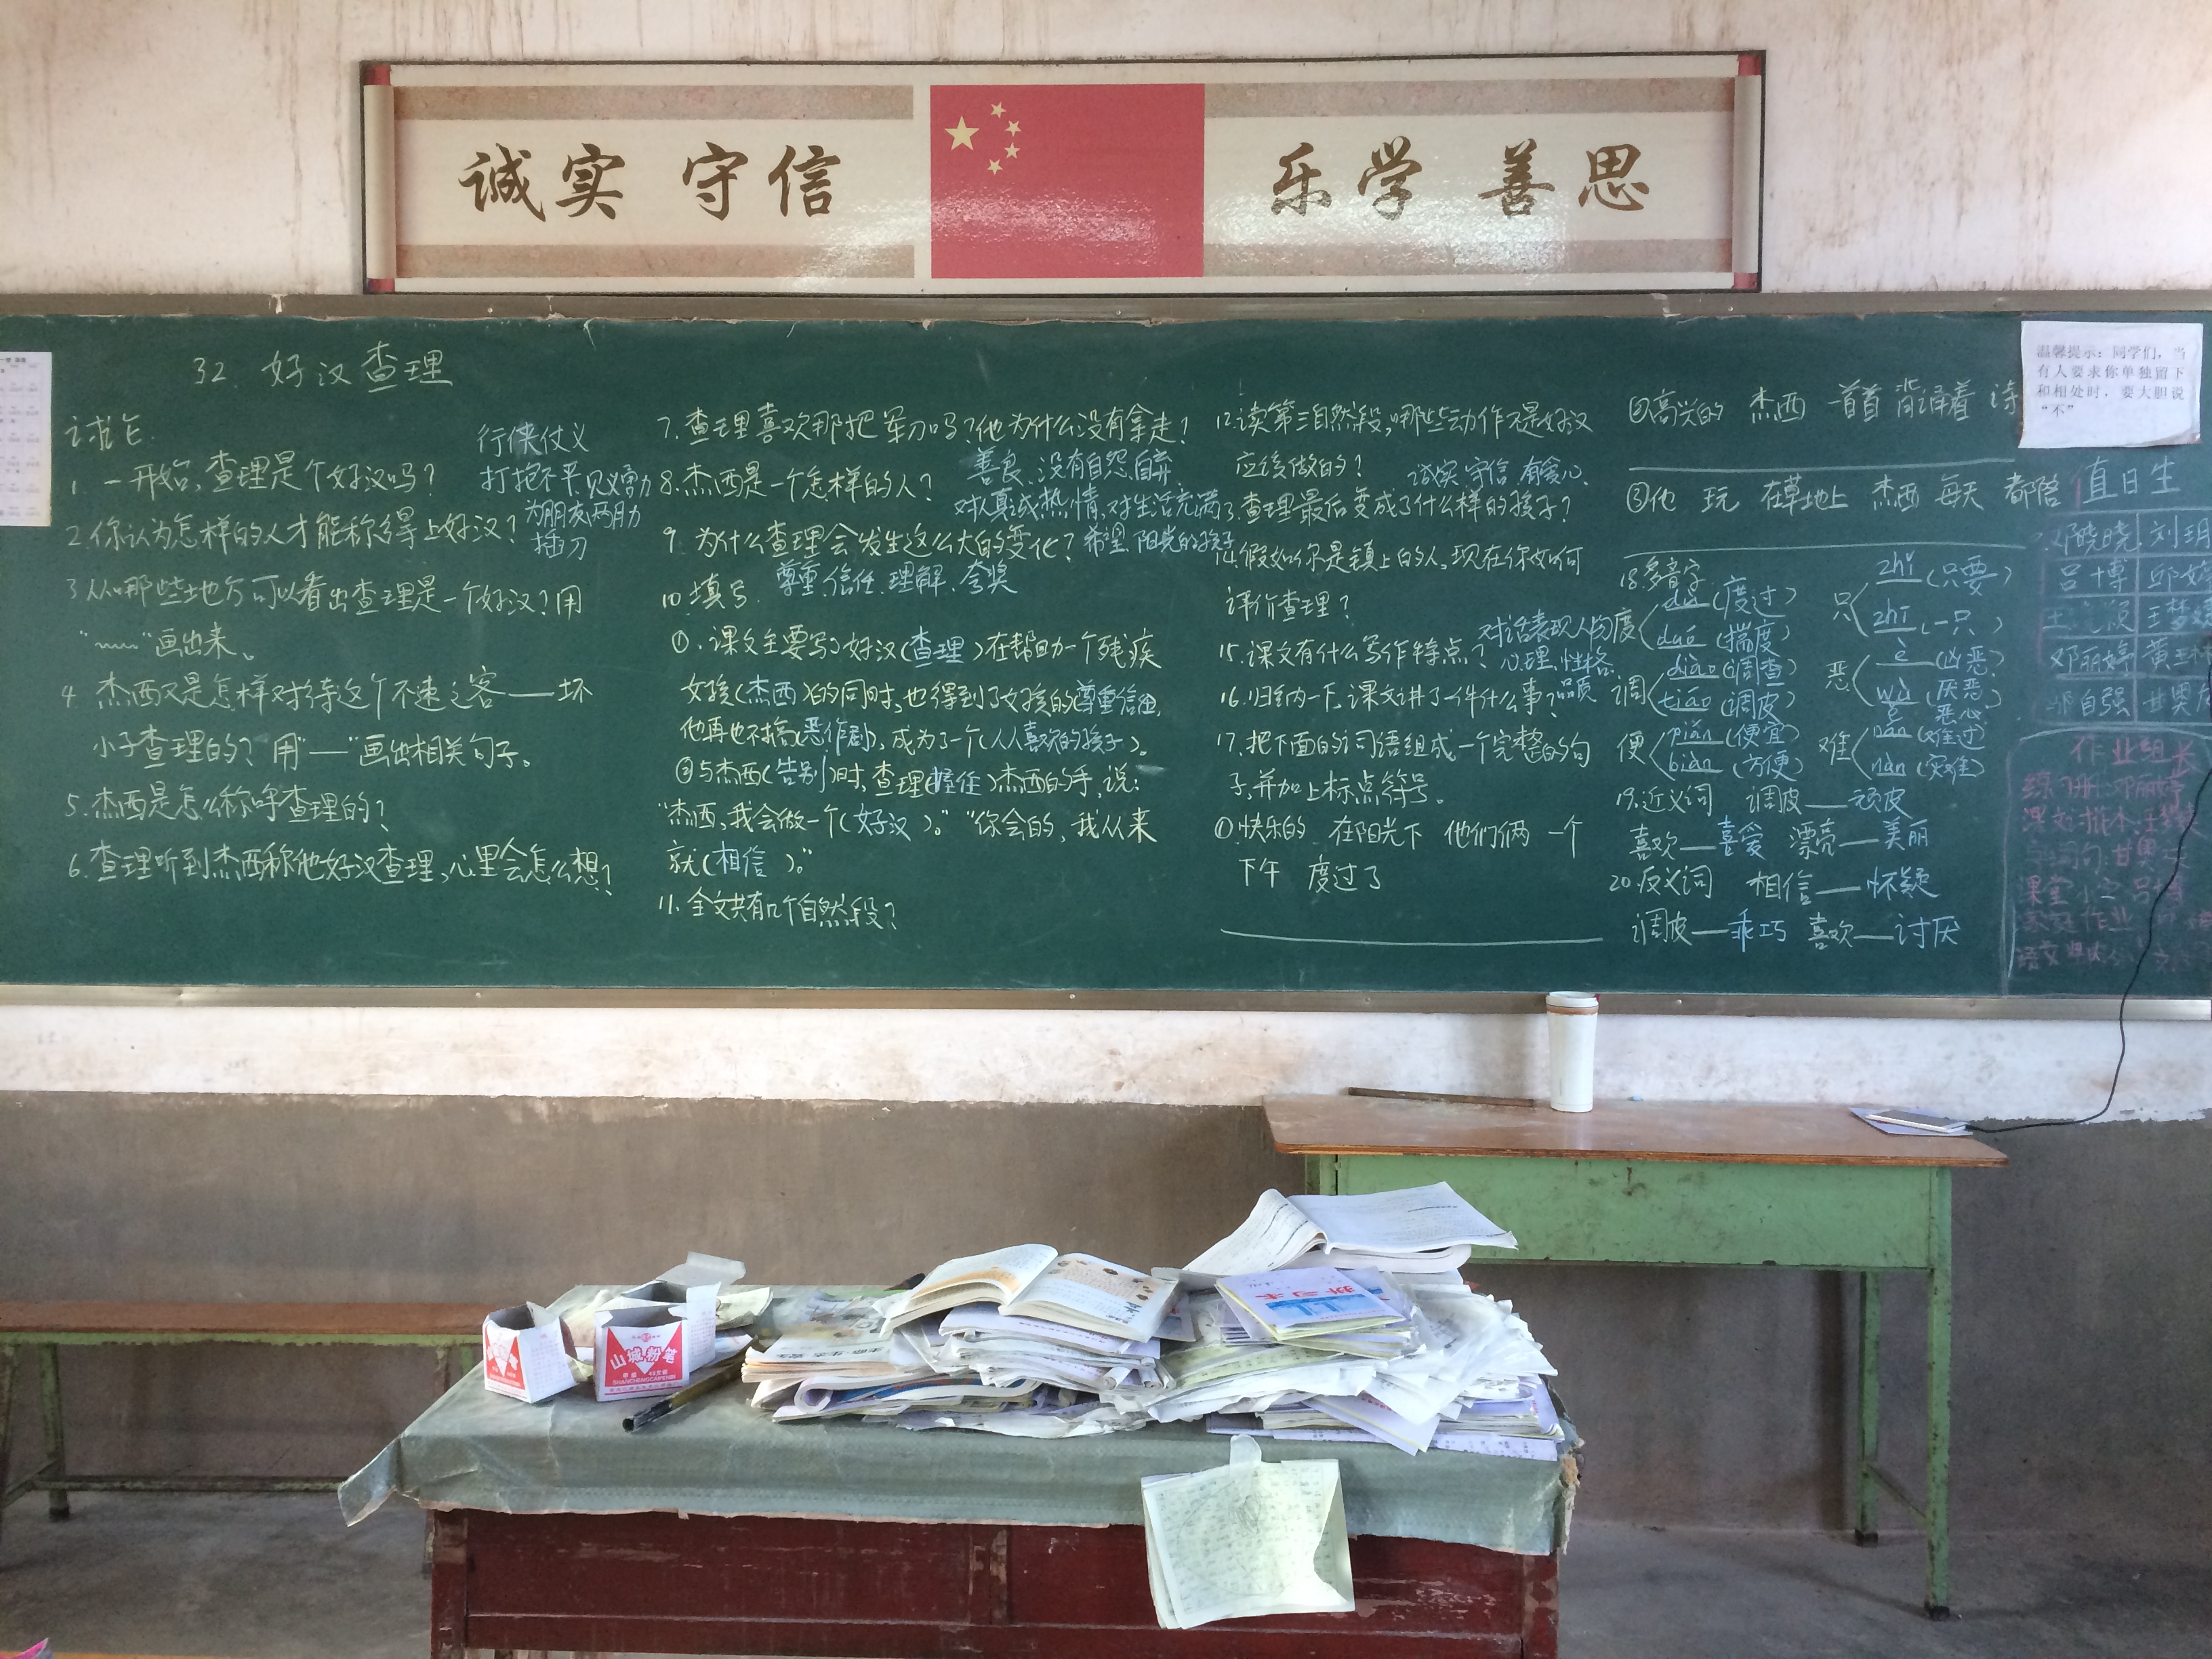 诚实 守信
乐学 善思
32. 好汉查理
讨论
1 一开始,查理是个好汉吗?
行侠仗义
打抱不平 见义勇为
为朋友两肋
插刀
2. 你认为怎样的人才能称得上好汉?
3 从哪些地方可以看出查理是一个好汉?用
“﹏﹏”画出来。
4 杰西又是怎样对待这个不速之客——坏
小子查理的? 用“—”画出相关句子。
5. 杰西是怎么称呼查理的?
6. 查理听到杰西称他好汉查理,心里会怎么想?
7. 查理喜欢那把军刀吗?他为什么没有拿走?
8. 杰西是一个怎样的人?
善良、没有自怨自弃、
对人真诚热情、对生活充满
希望、阳光的孩子
9. 为什么查理会发生这么大的变化?
尊重、信任、理解、夸奖
10. 填写.
①. 课文主要写了好汉(查理)在帮助一个残疾
女孩(杰西)的同时,也得到了女孩的(尊重信任),
他再也不搞(恶作剧),成为了一个(人人喜欢的孩子)。
②与杰西(告别)时,查理(握住)杰西的手,说:
“杰西,我会做一个(好汉)。”“你会的,我从来
就(相信)。”
11. 全文共有几个自然段?
12. 读第三自然段,哪些动作不是好汉
应该做的?
诚实 守信 有爱心、
13. 查理最后变成了什么样的孩子?
14. 假如你是镇上的人,现在你如何
评价查理?
15. 课文有什么写作特点?
对话表现人物
心理、性格、
品质
16. 归纳一下,课文讲了一件什么事?
17. 把下面的词语组成一个完整的句
子,并加上标点符号。
①快乐的 在阳光下 他们俩 一个
下午 度过了
②高兴的 杰西 一首首 背诵着 诗
③他 玩 在草地上 杰西 每天 都陪
18. 多音字
度 dù (度过)
duó (揣度)
调 diào (调查)
tiáo (调皮)
便 pián (便宜)
biàn (方便)
只 zhǐ (只要)
zhī (一只)
恶 è (凶恶)
wù (厌恶)
ě 恶心
难 nán (难过)
nàn (灾难)
19. 近义词 调皮——顽皮
喜欢——喜爱 漂亮——美丽
20. 反义词 相信——怀疑
调皮——乖巧 喜欢——讨厌
温馨提示:同学们,当
有人要求你单独留下
和相处时,要大胆说
“不”
值日生
邓晓晓 刘玥
吕博
邓丽婷
邹自强
作业组长
练习册:邓丽婷
家庭作业
山城粉笔
SHANCHENGCAIFENBI
练习本